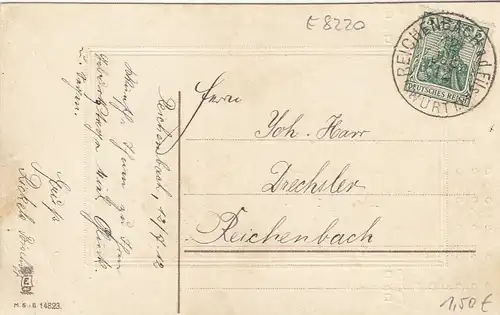 E 8220
REICHENBACH a.d. Fils
WÜRTT.
DEUTSCHES REICH
Herrn
Joh. Harr
Drechsler
Reichenbach
Reichenbach, 13/7 12
Wünsche Ihnen zu Ihrem
Geburtstage viel Glück
u. Segen.
Gruß
M. S. i. B. 14823.
1,50 €